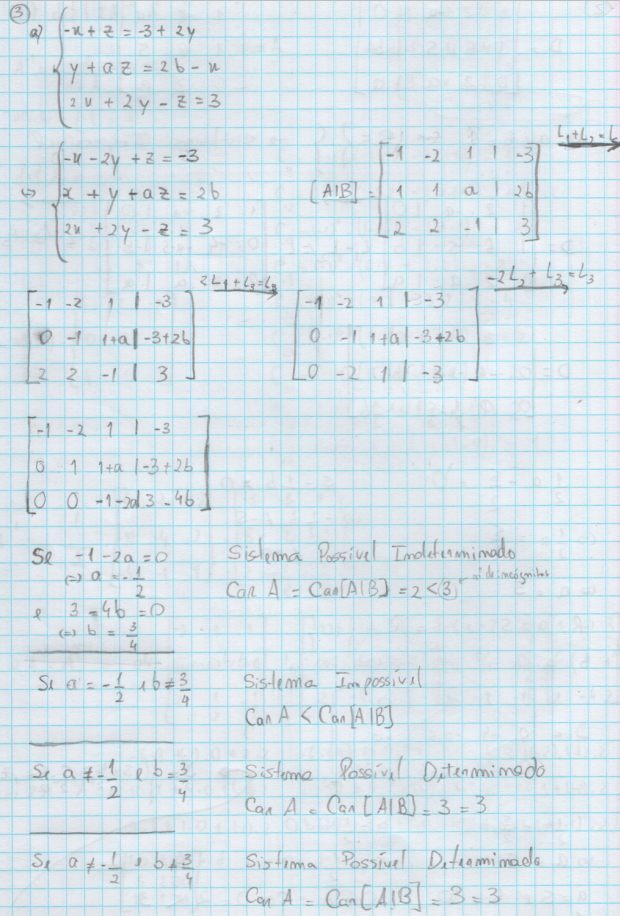 ③
a) { -x + z = -3 + 2y
y + az = 2b - x
2x + 2y - z = 3
⇔ { -x - 2y + z = -3
x + y + az = 2b
2x + 2y - z = 3
[A|B] = [ -1 -2 1 | -3
1 1 a | 2b
2 2 -1 | 3 ]
L₁+L₂=L
[ -1 -2 1 | -3
0 -1 1+a | -3+2b
2 2 -1 | 3 ]
2L₁+L₃=L₃
[ -1 -2 1 | -3
0 -1 1+a | -3+2b
0 -2 1 | -3 ]
-2L₂+L₃=L₃
[ -1 -2 1 | -3
0 1 1+a | -3+2b
0 0 -1-2a | 3-4b ]
Se -1-2a=0 Sistema Possível Indeterminado
⇔ a = -1/2 Car A = Car[A|B] = 2 < 3 nº de incógnitas
e 3-4b=0
⇔ b = 3/4
Se a = -1/2 e b ≠ 3/4 Sistema Impossível
Car A < Car[A|B]
Se a ≠ -1/2 e b = 3/4 Sistema Possível Determinado
Car A = Car[A|B] = 3 = 3
Se a ≠ -1/2 e b ≠ 3/4 Sistema Possível Determinado
Car A = Car[A|B] = 3 = 3